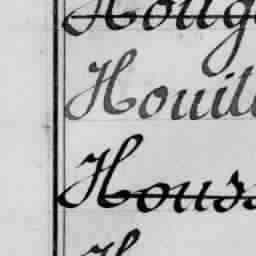 Houg
Houil
Hous